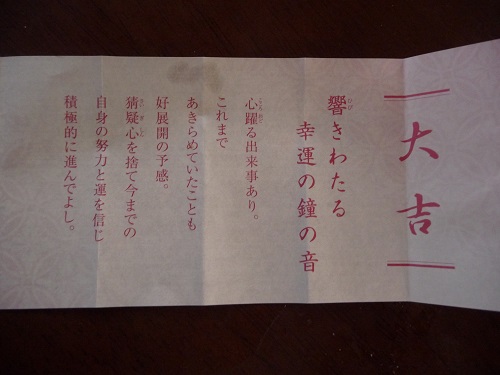 大吉
響きわたる
幸運の鐘の音
心躍る出来事あり。
これまで
あきらめていたことも
好展開の予感。
猜疑心を捨て今までの
自身の努力と運を信じ
積極的に進んでよし。